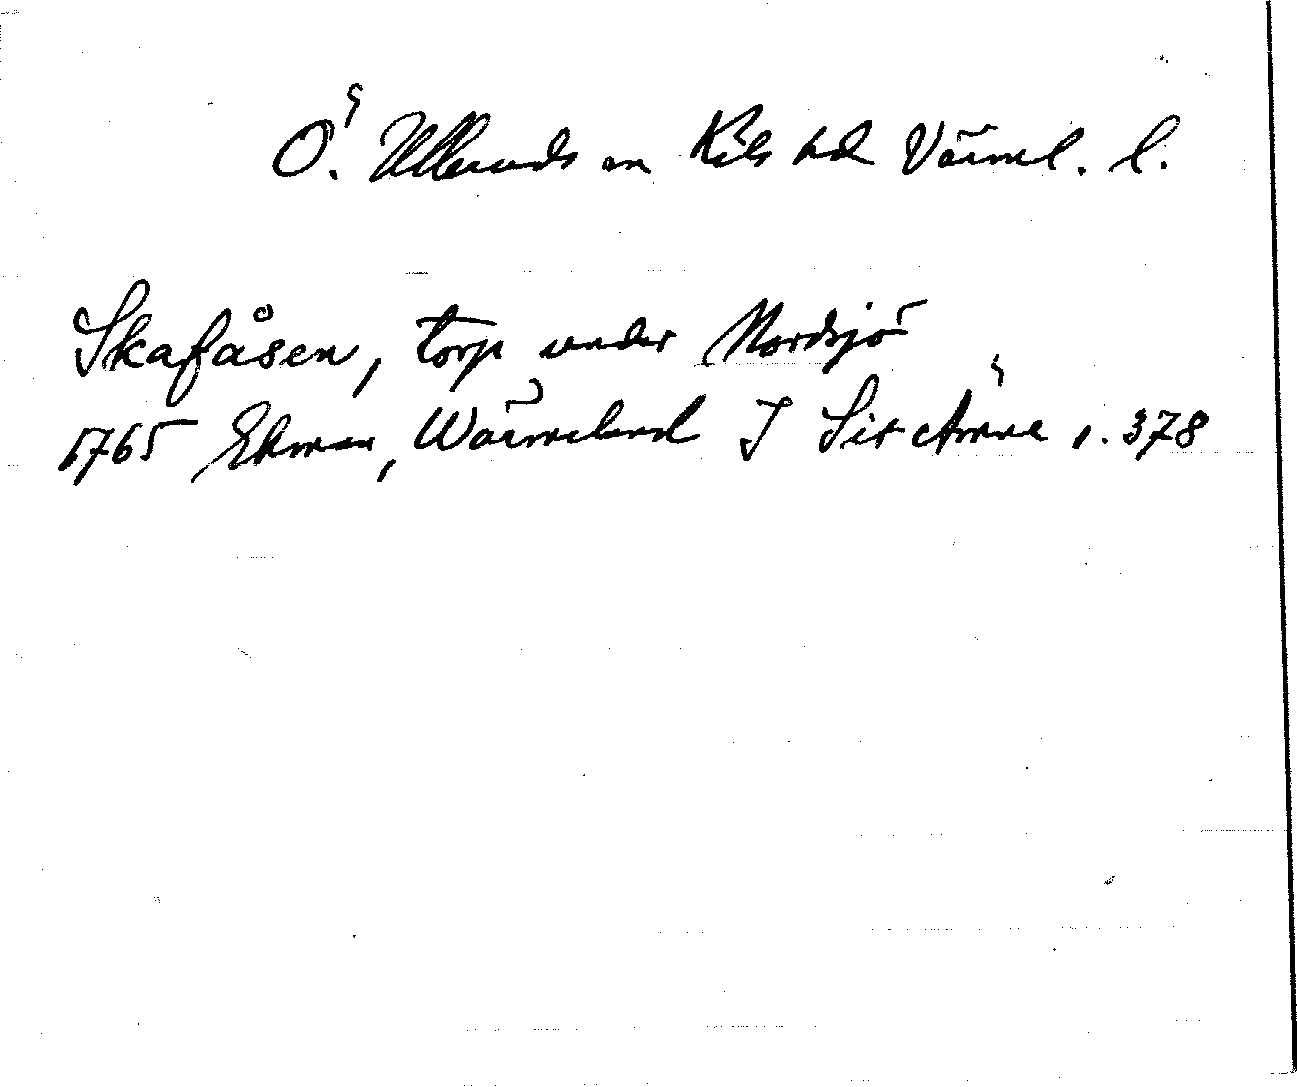 Ö. Ulleruds sn Kils hd Värml. l.
Skafåsen, torp under Nordsjö
1765 Ekman, Wärmeland I Sit Ämne s. 378